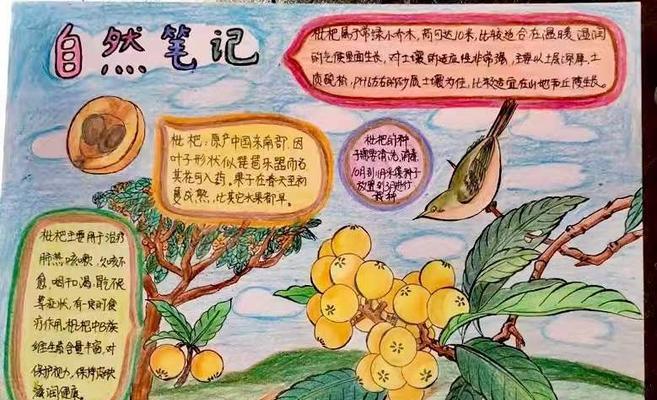 自然笔记
枇杷属于常绿小乔木，高可达10米，比较适合在温暖、湿润
的气候里面生长，对土壤的适应性非常强，主要以土层深厚、土
质疏松、pH6左右的砂质土壤为佳，比较适宜在山地和丘陵生长。
枇杷：原产中国东南部，因
叶子形状似琵琶乐器而名
其花可入药。果子在春天至初
夏成熟，比其它水果都早。
枇杷的种
子需要清洗，消毒
10月到11月采集种子
放置到3月进行
栽种
枇杷主要用于治疗
肺热咳嗽、久咳不
愈、咽干口渴、
等症状，有一定的食
疗作用，枇杷中B族
维生素含量丰富，对
保护视力，保持皮肤
滋润健康。